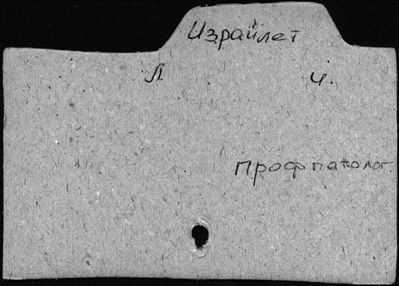 Израйлет
Л. И.
Профпатолог.